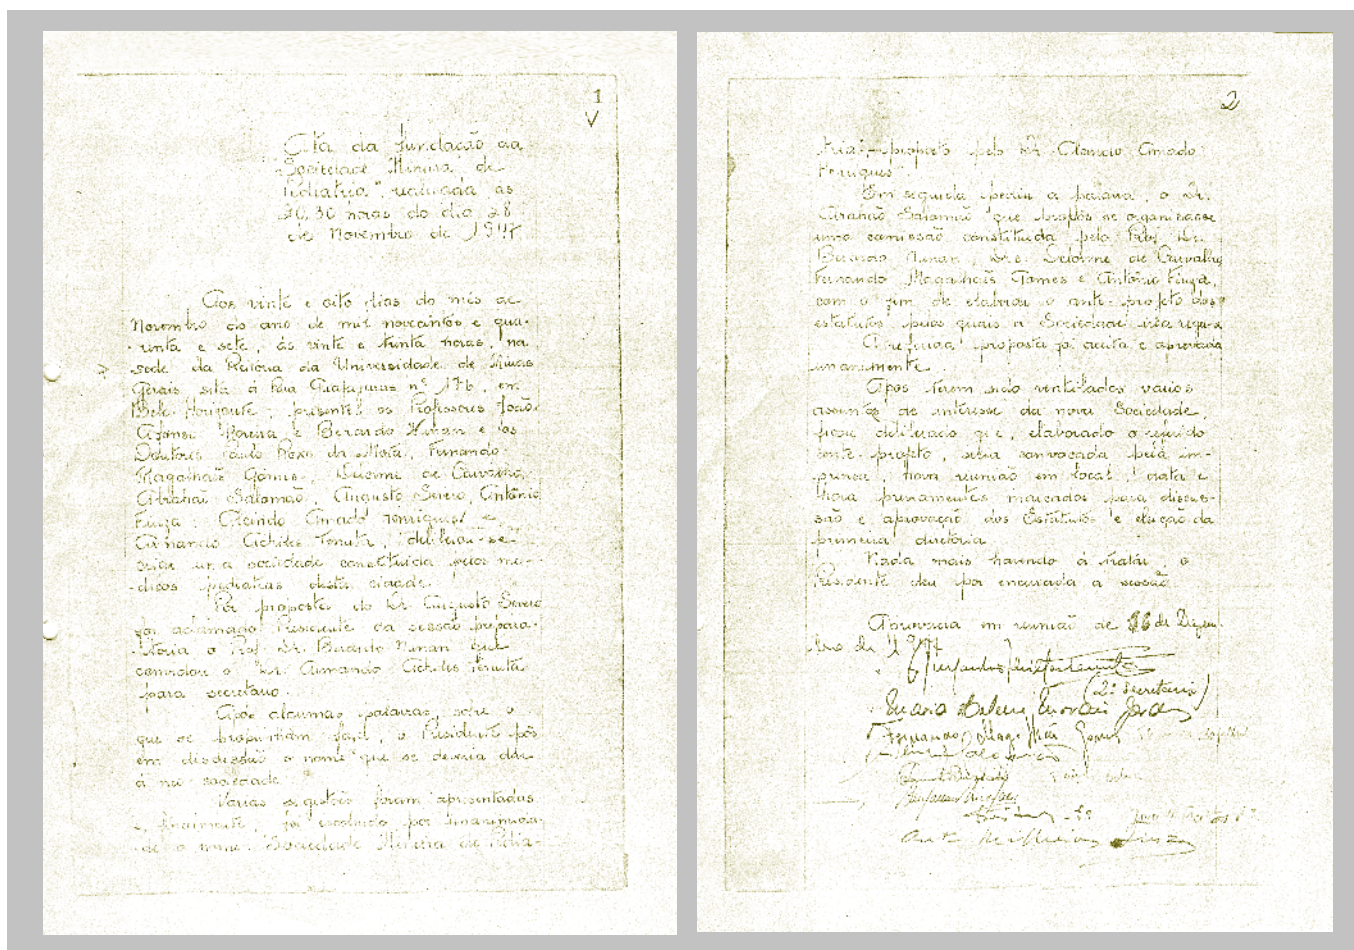 1
Ata da fundação da
"Sociedade Mineira de
Pediatria", realizada às
20,30 horas do dia 28
de Novembro de 1947.
Aos vinte e oito dias do mês de
Novembro do ano de mil novecentos e qua-
renta e sete, às vinte e trinta horas, na
sede da Reitoria da Universidade de Minas
Gerais sita à Rua Guajajaras nº 176, em
Belo Horizonte, presentes os Professores João
Afonso Moreira e Berardo Nunan e os
Doutores Paulo da Mota, Fernando
Magalhães Gomes, Delorme de Carvalho,
Abrahão Salomão, Augusto Severo, Antônio
Fiuza, Clarindo Amado Henriques e
Armando Achiles Tenuta, deliberou-se
criar uma sociedade constituida pelos me-
dicos pediatras desta cidade.
Por proposta do Dr. Augusto Severo
foi aclamado Presidente da sessão prepara-
tória o Prof. Dr. Berardo Nunan que
convidou o Dr. Armando Achiles Tenuta
para secretario.
Após algumas palavras, sobre o
que se propunham fazer, o Presidente pôs
em discussão o nome que se deveria dar
à sociedade.
Varias sugestões foram apresentadas
e, finalmente, foi escolhido por unanimida-
de o nome "Sociedade Mineira de Pedia-
2
tria", proposto pelo Dr. Clarindo Amado
Henriques.
Em seguida pediu a palavra, o Dr.
Abrahão Salomão que propôs se organizasse
uma comissão constituida pelo Prof. Dr.
Berardo Nunan, Drs. Delorme de Carvalho,
Fernando Magalhães Gomes e Antônio Fiuza,
com o fim de elaborar o ante-projeto dos
estatutos pelos quais a Sociedade
A referida proposta foi aceita e aprovada
unanimente.
Após terem sido ventilados varios
assuntos de interesse da nova Sociedade,
ficou deliberado que, elaborado o referido
ante-projeto, seria convocada pela im-
prensa, nova reunião em local, data e
hora previamente marcados para discus-
são e aprovação dos Estatutos e eleição da
primeira diretoria.
Nada mais havendo à tratar, o
Presidente deu por encerrada a sessão.
Aprovada em reunião de 16 de Dezem-
bro de 1947
(2ª secretaria)
Fernando Magalhães Gomes